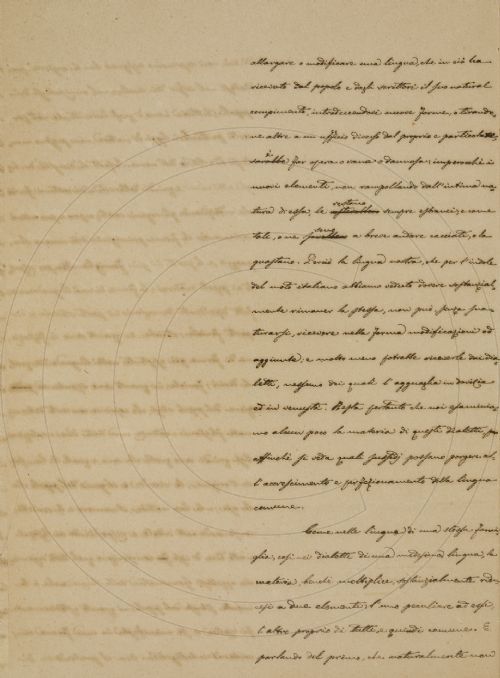 allargare o modificare una lingua, che in ciò ha
ricevuto dal popolo e dagli scrittori il suo natural
compimento, introducendosi nuove forme, o tirando
ne altre a un ufficio diverso dal proprio e particolare,
sarebbe è far opera o vana o dannosa; imperocchè i
nuovi elementi, non rampollando dall'intima na-
tura di essa, le restano sempre estranei; e come
tale, o ne sono a breve andare cacciati, o la
guastano. Perciò la lingua nostra, che per l'indole
del moto italiano abbiamo veduto dovere sostanzial-
mente rimaner la stessa, non può, senza sna-
turarsi, ricevere nella forma modificazioni od
aggiunte, e molto meno potrebbe riceverle dai dia-
letti, nessuno dei quali l'agguaglia in dovizia
ed in venustà. Basta pertanto che noi esaminia-
mo alcun poco la materia di questi dialetti
affinchè si veda quali sussidj possano porgere al-
l'accrescimento e perfezionamento della lingua
comune.
Come nelle lingue di una stessa fami-
glia, così nei dialetti di una medesima lingua, la
materia, benchè moltiplice, sostanzialmente ridu-
cesi a due elementi; l'uno peculiare ad essi,
l'altro proprio di tutti, e quindi comune. E
parlando del primo, che naturalmente non